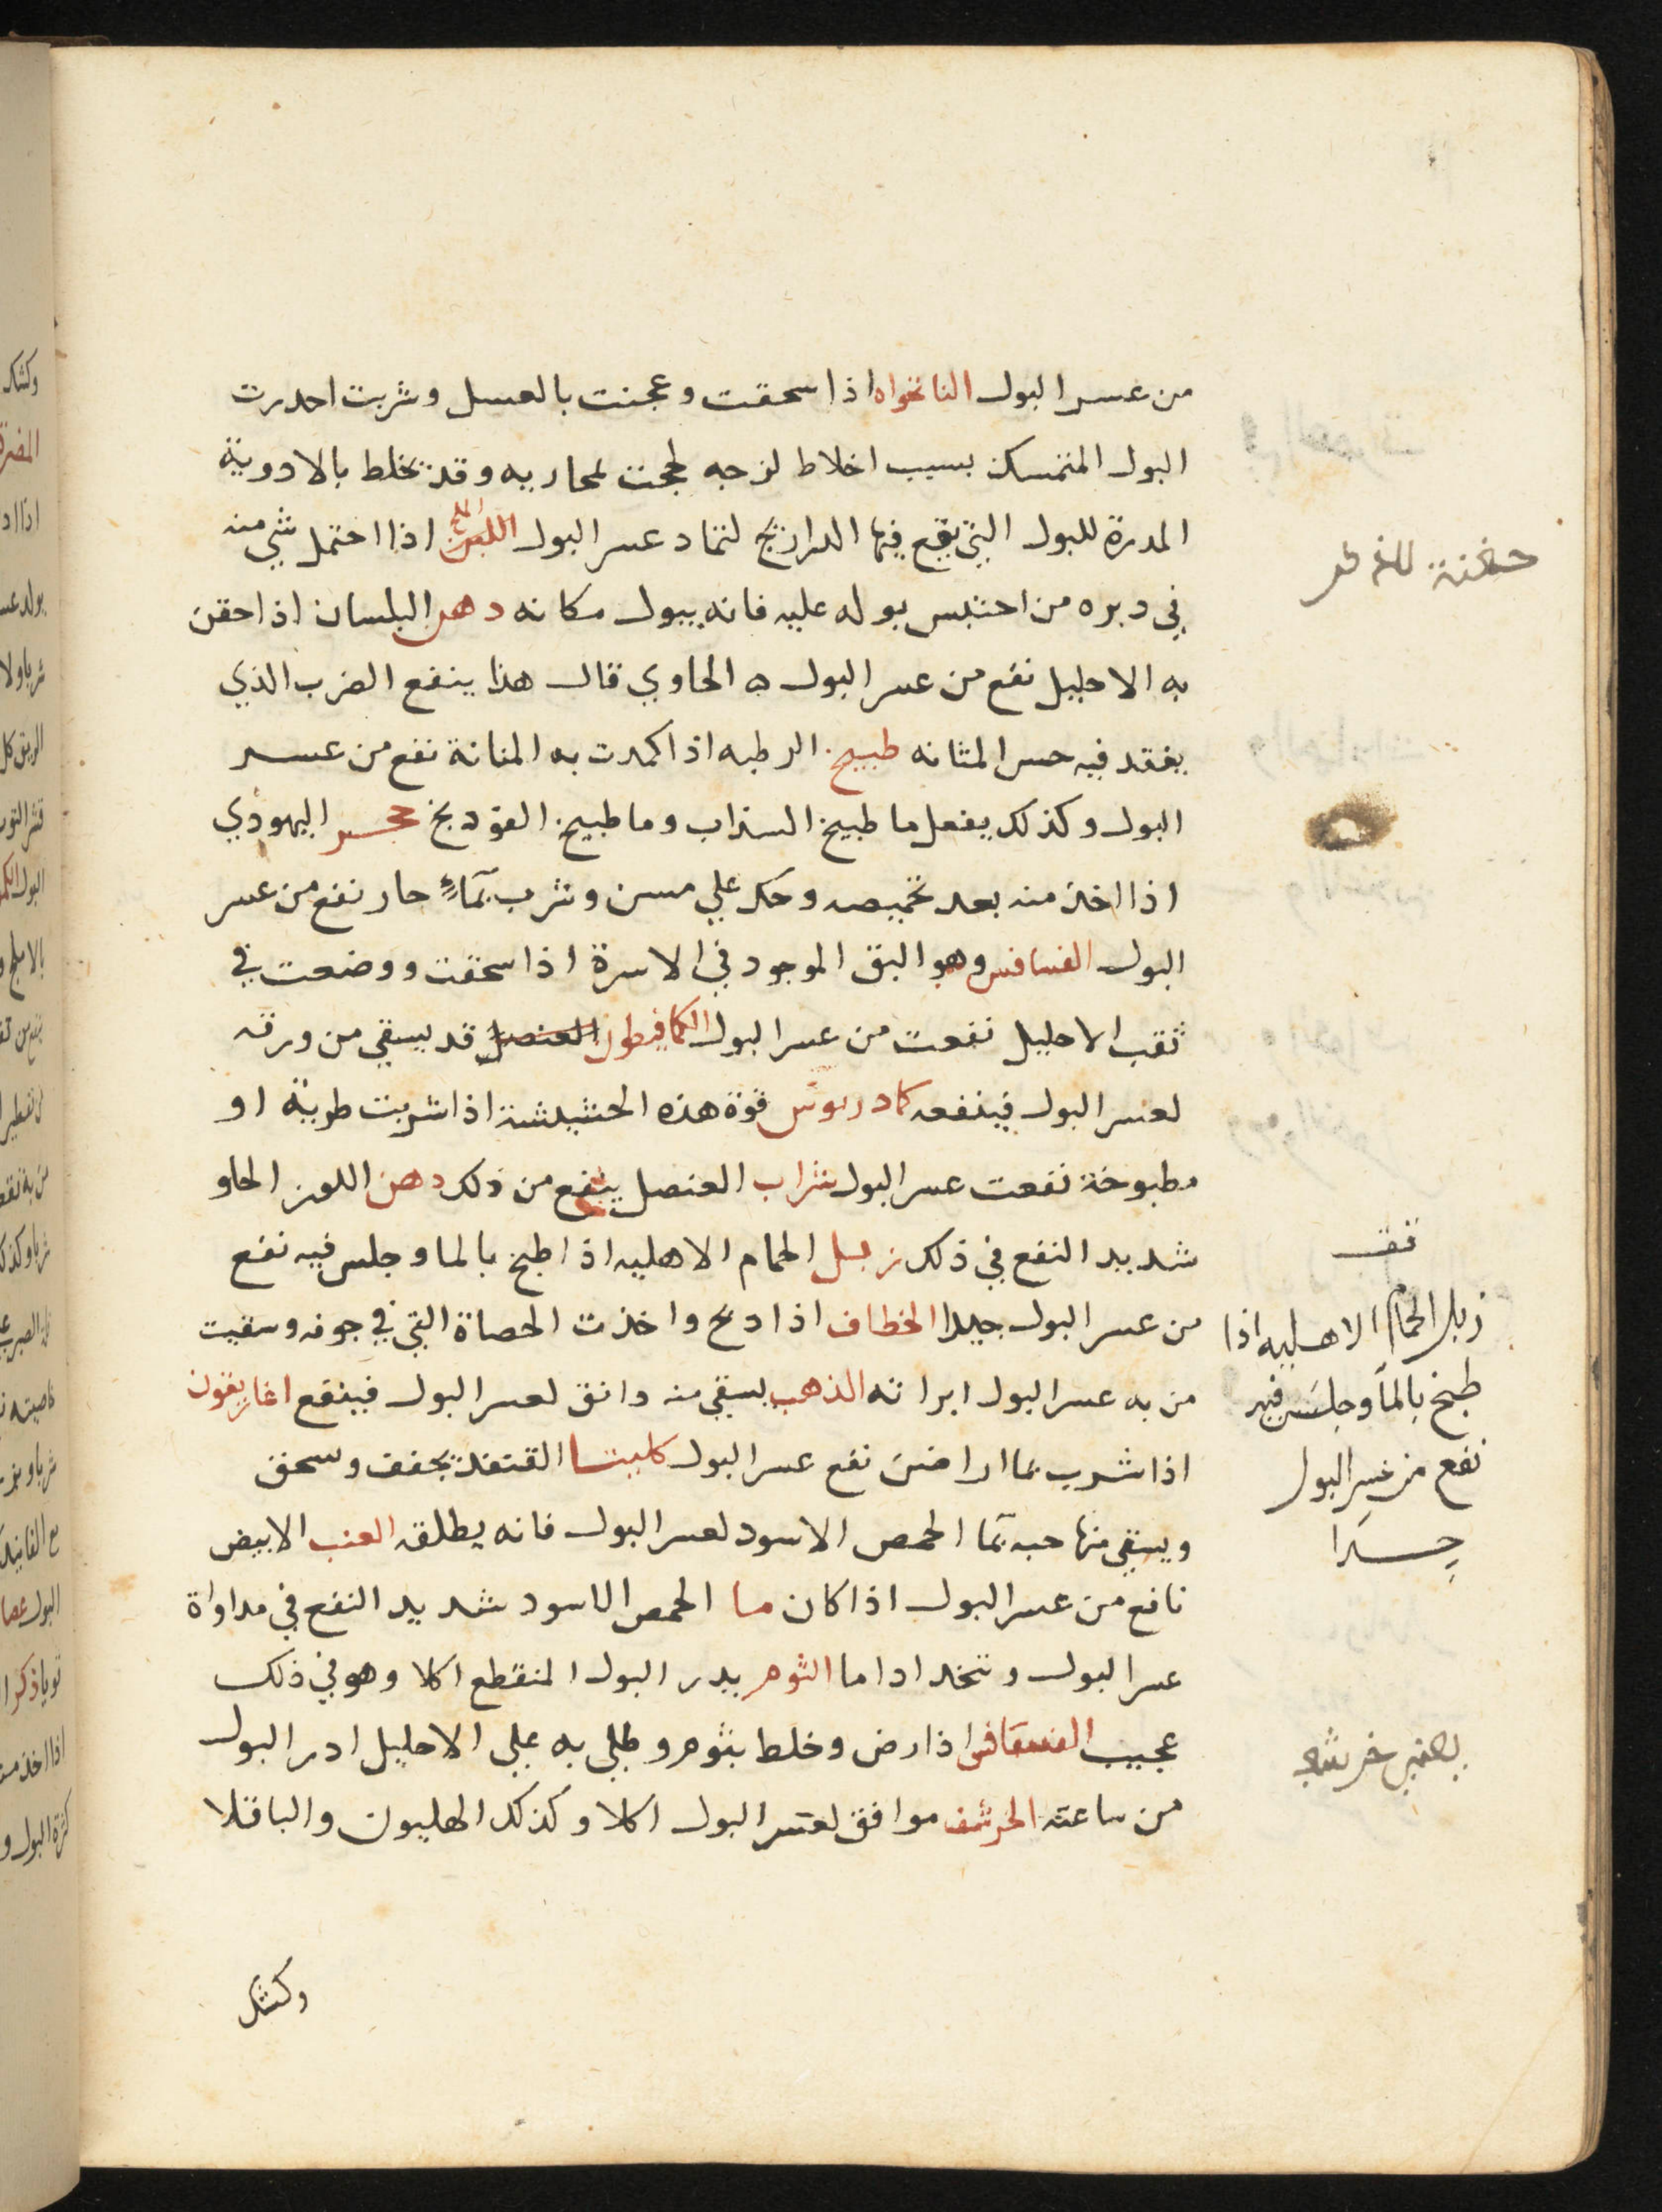 من عسر البول النانخواه اذا سحقت وعجنت بالعسل وشربت احدرت
البول المتمسك بسبب اخلاط لزجه لججت لمجاريه وقد تخلط بالادوية
المدرة للبول التي يقع فيها الدراريج لتمادى عسر البول الملح اذا احتمل شي منه
في دبره من احتبس بوله عليه فانه يبول مكانه دهن البلسان اذا حقن
به الاحليل نفع من عسر البول ه الحاوي قال هذا ينفع الضرب الذي
يفقد فيه حس المثانه طبيخ الرطبه اذا كمدت به المثانة نفع من عسر
البول وكذلك يفعل ما طبيخ السذاب وما طبيخ الفودنج حجر اليهودي
اذا اخذ منه بعد تحميصه وحك علي مسن وشرب بمآءٍ حار نفع من عسر
البول الفسافس وهو البق الموجود في الاسرة اذا سحقت ووضعت في
ثقب الاحليل نفعت من عسر البول الكمافيطوس العنصل قد يسقي من ورقه
لعسر البول فينفعه كمادريوس قوة هذه الحشيشة اذا شربت طرية او
مطبوخة نفعت عسر البول شراب العنصل ينفع من ذلك دهن اللوز الحلو
شديد النفع في ذلك زبل الحمام الاهليه اذا طبخ بالما وجلس فيه نفع
من عسر البول جيدا الخطاف اذا دبح واخذت الحصاة التي في جوفه وسقيت
من به عسر البول ابراته الذهب يسقي منه دانق لعسر البول فينفع اغاريقون
اذا شرب بما الرا نفع عسر البول كليتا القنفذ تجفف وسحق
ويسقي منها حبه بما الحمص الاسود لعسر البول فانه يطلقه العنب الابيض
نافع من عسر البول اذا كان ما الحمص الاسود شديد النفع في مداواة
عسر البول وتتخد اداما الثوم يدر البول المنقطع اكلا وهو في ذلك
عجيب الفسافس اذا رض وخلط بثوم وطلي به علي الاحليل ادر البول
من ساعته الخرشف موافق لعسر البول اكلا وكذلك الهليون والباقلا
وكشك
حقنة
تقف
زبل الحمام الاهليه اذا
طبخ بالمآ وجلس فيه
نفع من عسر البول
جيدا
خرشف